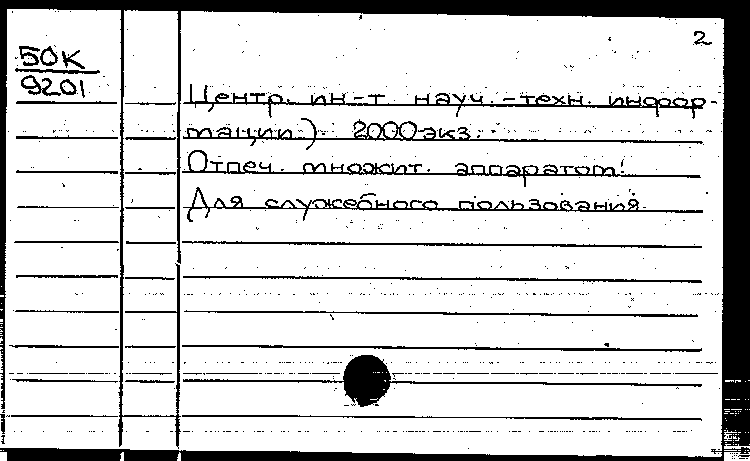 2
50К
9201
Центр. ин-т науч.-техн. инфор-
мации). 2000 экз.
Отпеч. множит. аппаратом.
Для служебного пользования.